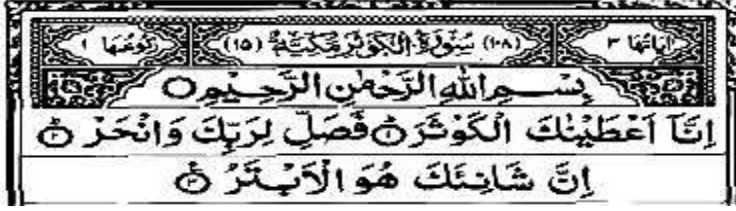 اٰیَاتُهَا ٣ (١٠٨) سُوْرَةُ الْكَوْثَرِ مَكِّيَّةٌ (١٥) رُكُوْعُهَا ١
بِسْمِ اللهِ الرَّحْمٰنِ الرَّحِيْمِ ○
اِنَّاۤ اَعْطَيْنٰكَ الْكَوْثَرَ ۝١ فَصَلِّ لِرَبِّكَ وَانْحَرْ ۝٢
اِنَّ شَانِئَكَ هُوَ الْاَبْتَرُ ۝٣